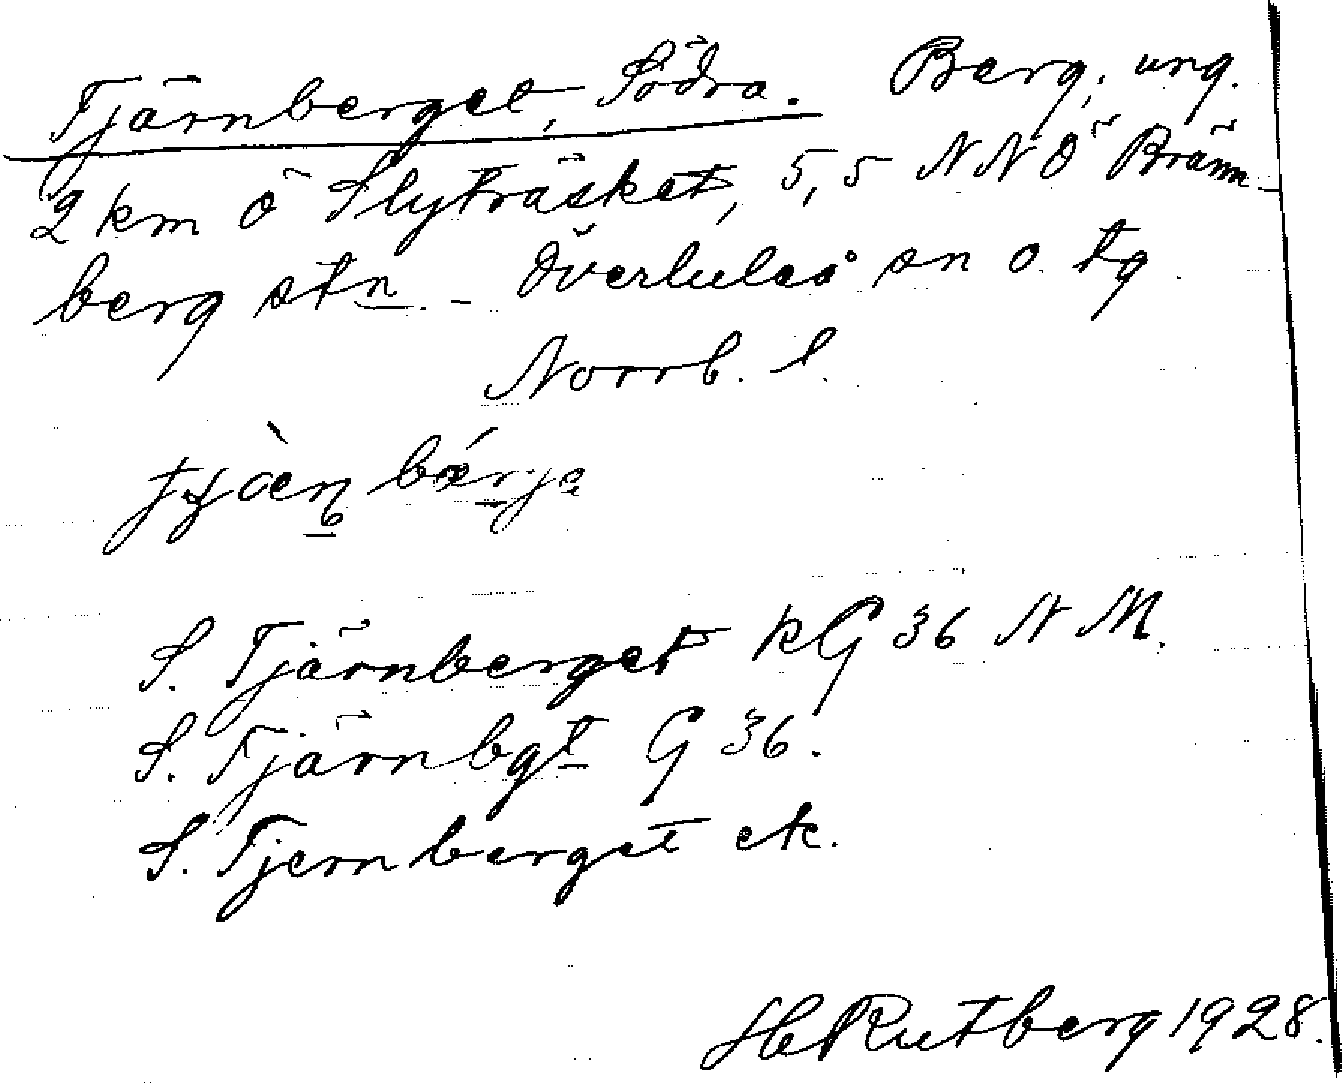 Tjärnberget, Södra. Berg, ung.
2 km ö Slyträsket, 5,5 NNÖ Bränn-
berg stn - Överluleå sn o. tg
Norrb. l.
S. Tjärnberget kG 36 N M.
S. Tjärnbgt G 36.
S. Tjernberget ek.
H Rutberg 1928.